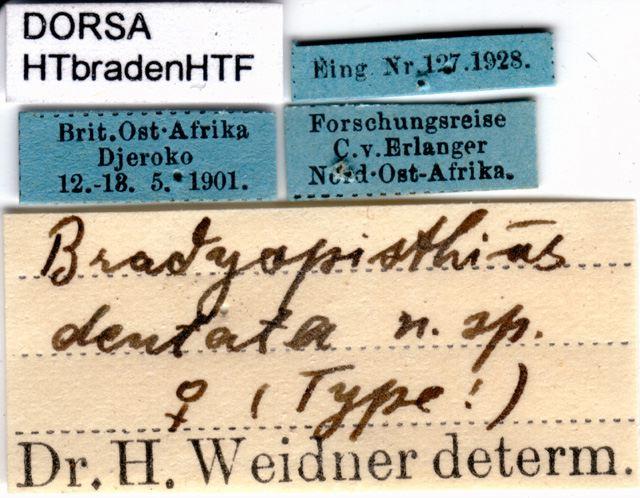 DORSA
HTbradenHTF
Eing Nr.127.1928.
Brit.Ost·Afrika
Djeroko
12.-18. 5. 1901.
Forschungsreise
C.v.Erlanger
Nord·Ost-Afrika.
Bradyopisthius
dentata n. sp.
♀ (Type!)
Dr. H. Weidner determ.